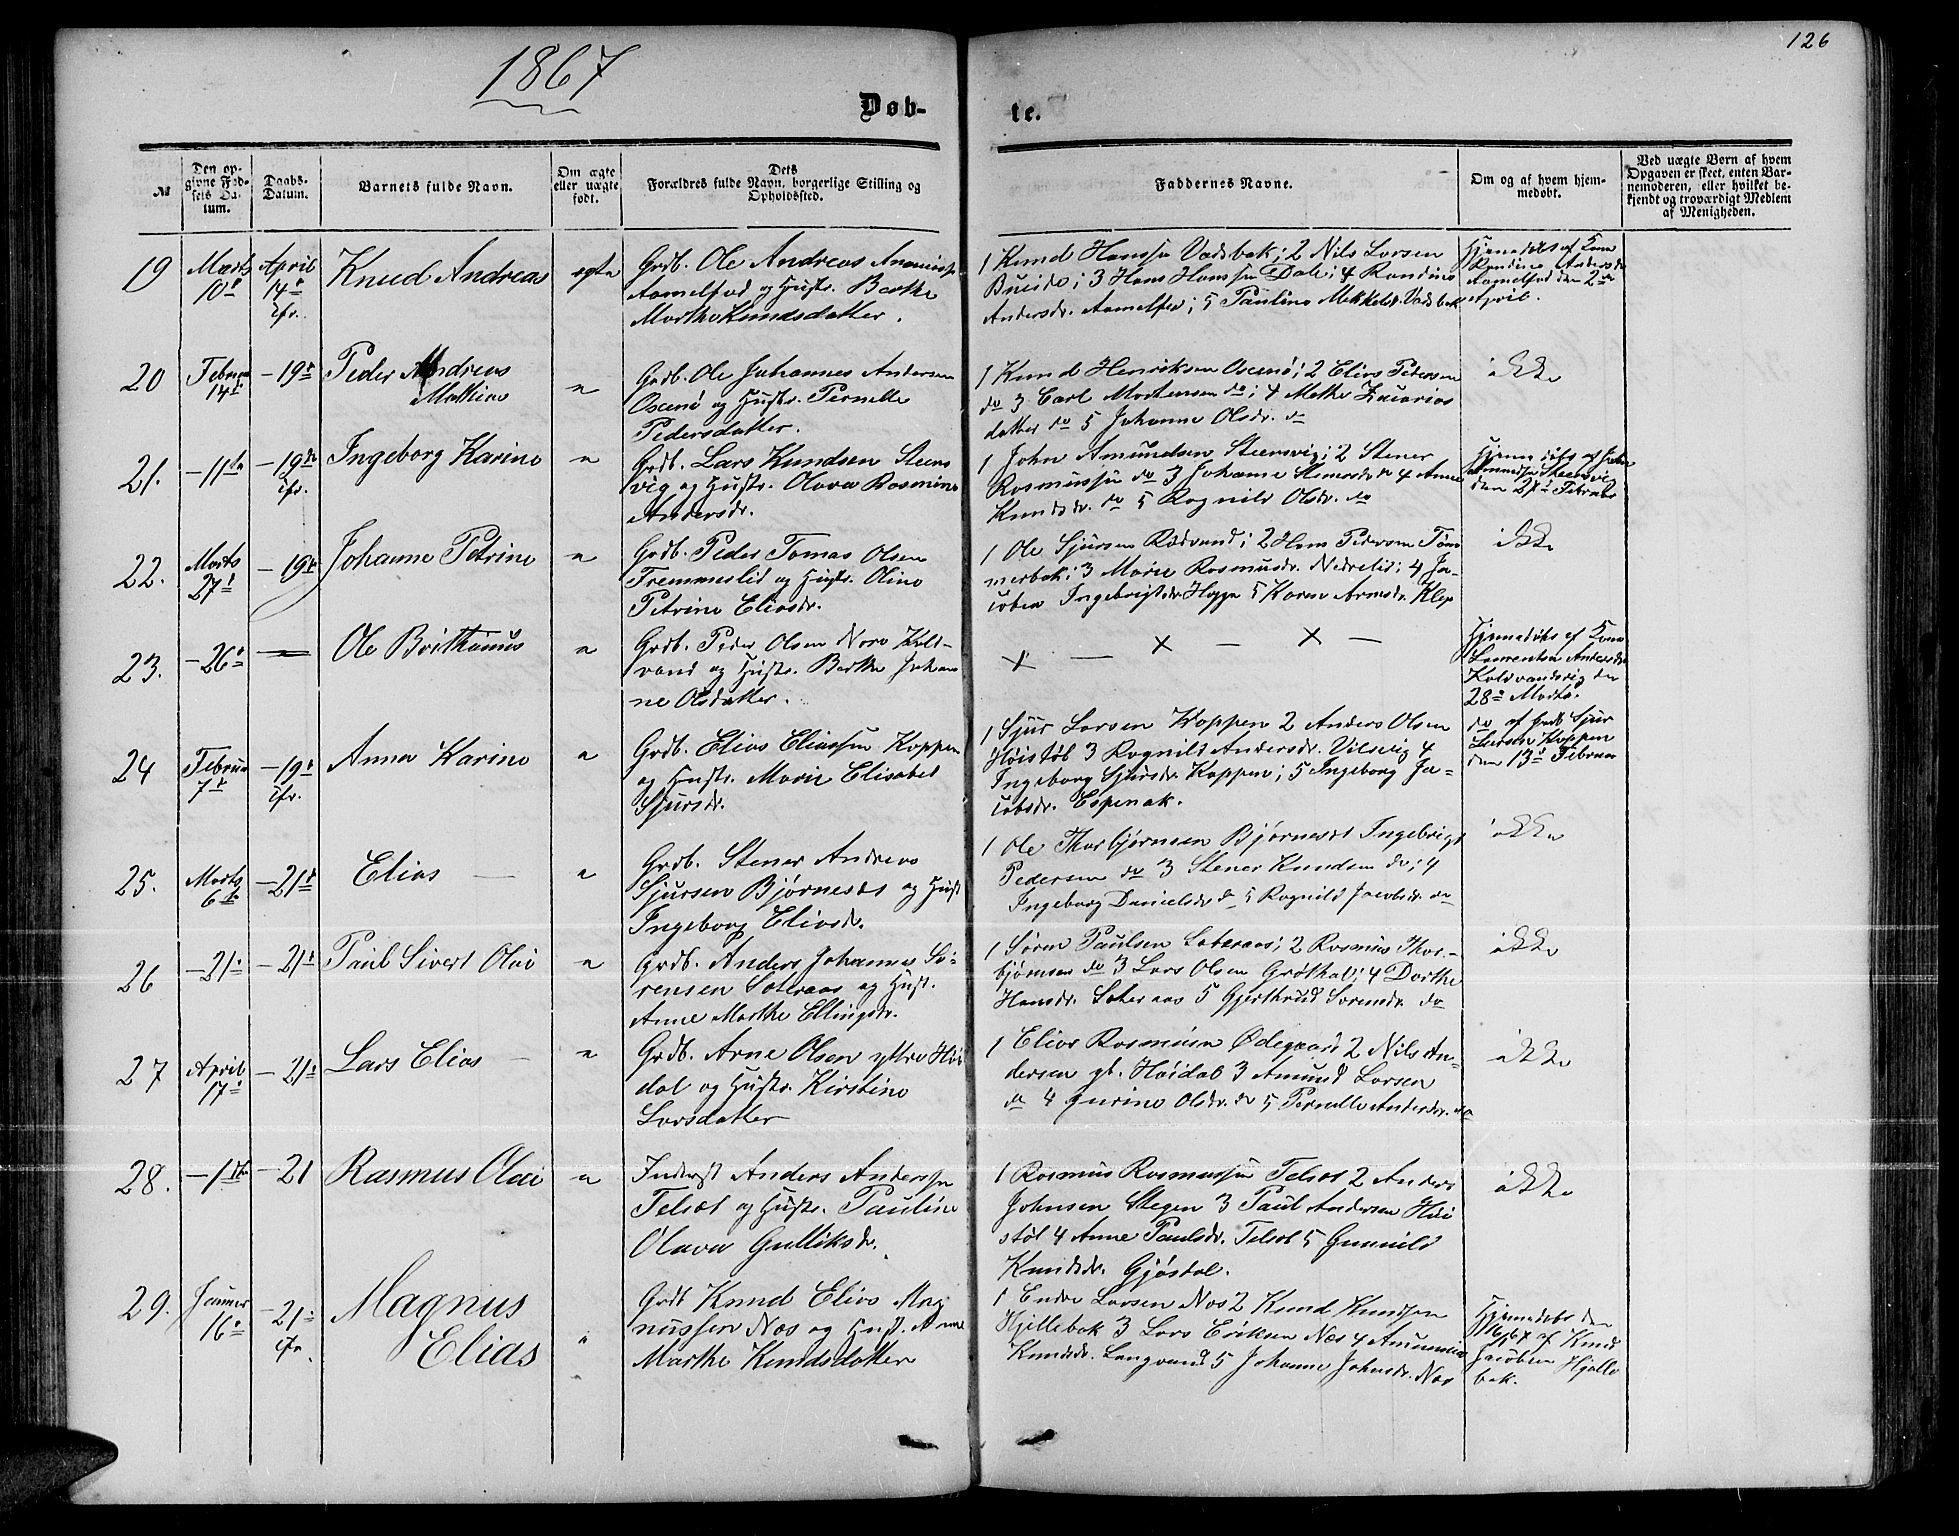 126
1867
Døb-
te.
№
Den op-
givne Fød-
sels Da-
tum.
Daabs-
Datum.
Barnets fulde Navn.
Om ægte
eller uægte
født.
Dets
Forældres fulde Navn, borgerlige Stilling og
Opholdssted.
Faddernes Navne.
Om og af hvem hjem-
medøbt.
Ved uægte Børn af hvem
Opgaven er skeet, enten Bar-
nemoderen, eller hvilket be-
kjendt og troværdigt Medlem
af Menigheden.
19
Marts
10de
April
14de
ifr.
Knud Andreas
ægte
Grdb. Ole Andreas
Aamelfod og Hustr. Berthe
Marthe Knudsdatter.
1 Knud Hansen Vadsbak; 2 Nils Larsen
3 Hans Hansen Dale; 4 Randine
Andersdr. Aamelfod; 5 Pauline Mekkelsd. Vadsbak
Hjemedøbt af Kone
Randine Andersdr
Aamelfod den 2de
April.
20
Februar
14de
-19de
Peder Andreas
Mathias
"
Grdb. Ole Johannes Andersen
Oxenø og Hustr. Pernelle
Pedersdatter.
1 Knud Henriksen Oxenø; 2 Elias Pedersen
do 3 Carl Mortensen do; 4 Methe Zacarias
datter do 5 Johanne Olsdr. do
ikke
21.
-11te
-19de
ifr.
Ingeborg Karine
"
Grdb. Lars Knudsen Steens
vig og Hustr. Olava Rasmine
Andersdr.
1 John Amundsen Steensvig; 2 Stener
Rasmussen do 3 Johanne Stenersdr do 4 Anne
Knudsdr. do 5 Ragnild Olsdr. do
Hjemedøbt af John
Amundsen Steensvig
den 21de Februar
22.
Marts
27de
-19de
Johanne Petrine
"
Grdb. Peder Tomas Olsen
Fremmerlid og Hustr. Oline
Petrine Eliasdr.
1 Ole Sjursen Rødvand; 2 Hans Pedersen Tøm
merbak; 3 Marie Rasmusdr. Nedrelid; 4 Ja-
cobea Ingebrigtsdr. Hegge 5 Karen Arnesdr. Klep
ikke
23.
-26de
Ole Brithanus
"
Grdb. Peder Olsen Nore Kold-
vand og Hustr. Berthe Johan
ne Olsdatter.
x — x — x —
Hjemedøbt af Kone
Laurentse Andersdr
Koldvandsvig den
28de Marts.
24
Februar
7de
-19de
ifr.
Anna Karine
"
Grdb. Elias Eliassen Koppen
og Hustr. Marie Elisabet
Sjursdr.
1 Sjur Larsen Koppen 2 Anders Olsen
Høistøl 3 Ragnild Andersdr. Vilsvig 4
Ingeborg Sjursdr. Koppen; 5 Ingeborg Ja-
cobsdr. Espenak.
do af Grdb Sjur
Larsen Koppen
den 13de Februar
25.
Marts
6te
-21de
Elias
"
Grdb. Stener Andreas
Sjursen Bjørnesæt og Hust
Ingeborg Eliasdr.
1 Ole Thorbjørnsen Bjørnesæt Ingebrigt
Pedersen do 3 Stener Knudsen do; 4
Ingeborg Danielsdr do 5 Ragnild Jacobsdr. do
ikke
26
-21de
-21de
Paul Sivert Olai
"
Grdb. Anders Johannes Sø-
rensen Soteraas og Hust.
Anne Marthe Ellingsdr.
1 Søren Paulsen Soteraas; 2 Rasmus Thor-
bjørnsen do 3 Lars Olsen Grøthal; 4 Dorthe
Hansdr. Soteraas 5 Gjerthrud Sørensdr. do
ikke
27
April
17de
-21de
Lars Elias
"
Grdb. Arne Olsen yttre Høi
dal og Hustr. Kirstine
Larsdatter
1 Elias Rasmusen Ødegaard 2 Nils An-
dersen yt. Høidal 3 Amund Larsen
do 4 Gurine Olsdr. do 5 Pernelle Andersdr. do
ikke
28.
-1ste
-21
Rasmus Olai
"
Inderst Anders Anderssen
Telsæt og Hustr. Pauline
Olava Gulliksdr.
1 Rasmus Rasmussen Telsæt 2 Anders
Johnsen Stegen 3 Paul Andersen Høi
støl 4 Anne Paulsdr. Telsæt 5 Gunnild
Knudsdr. Gjøstøl.
ikke
29.
Januar
16de
-21de
ifr.
Magnus
Elias
"
Grdb Knud Elias Mag
nussen Næs og Hust. Anne
Marthe Knudsdatter
1 Endre Larsen Næs 2 Knud Knudsen
Hjellebak 3 Lars Eriksen Næs 4
Knudsdr. Langvand 5 Johanne Johnsdr. Næs
Hjemedøbt den
af Knud
Jacobsen Hjelle
bak.